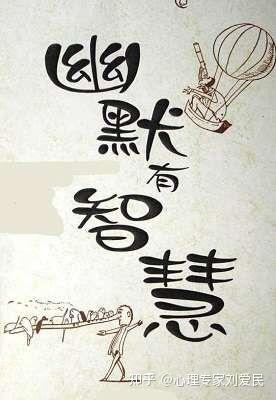 幽
默
有
智
慧
知乎 @心理专家刘爱民